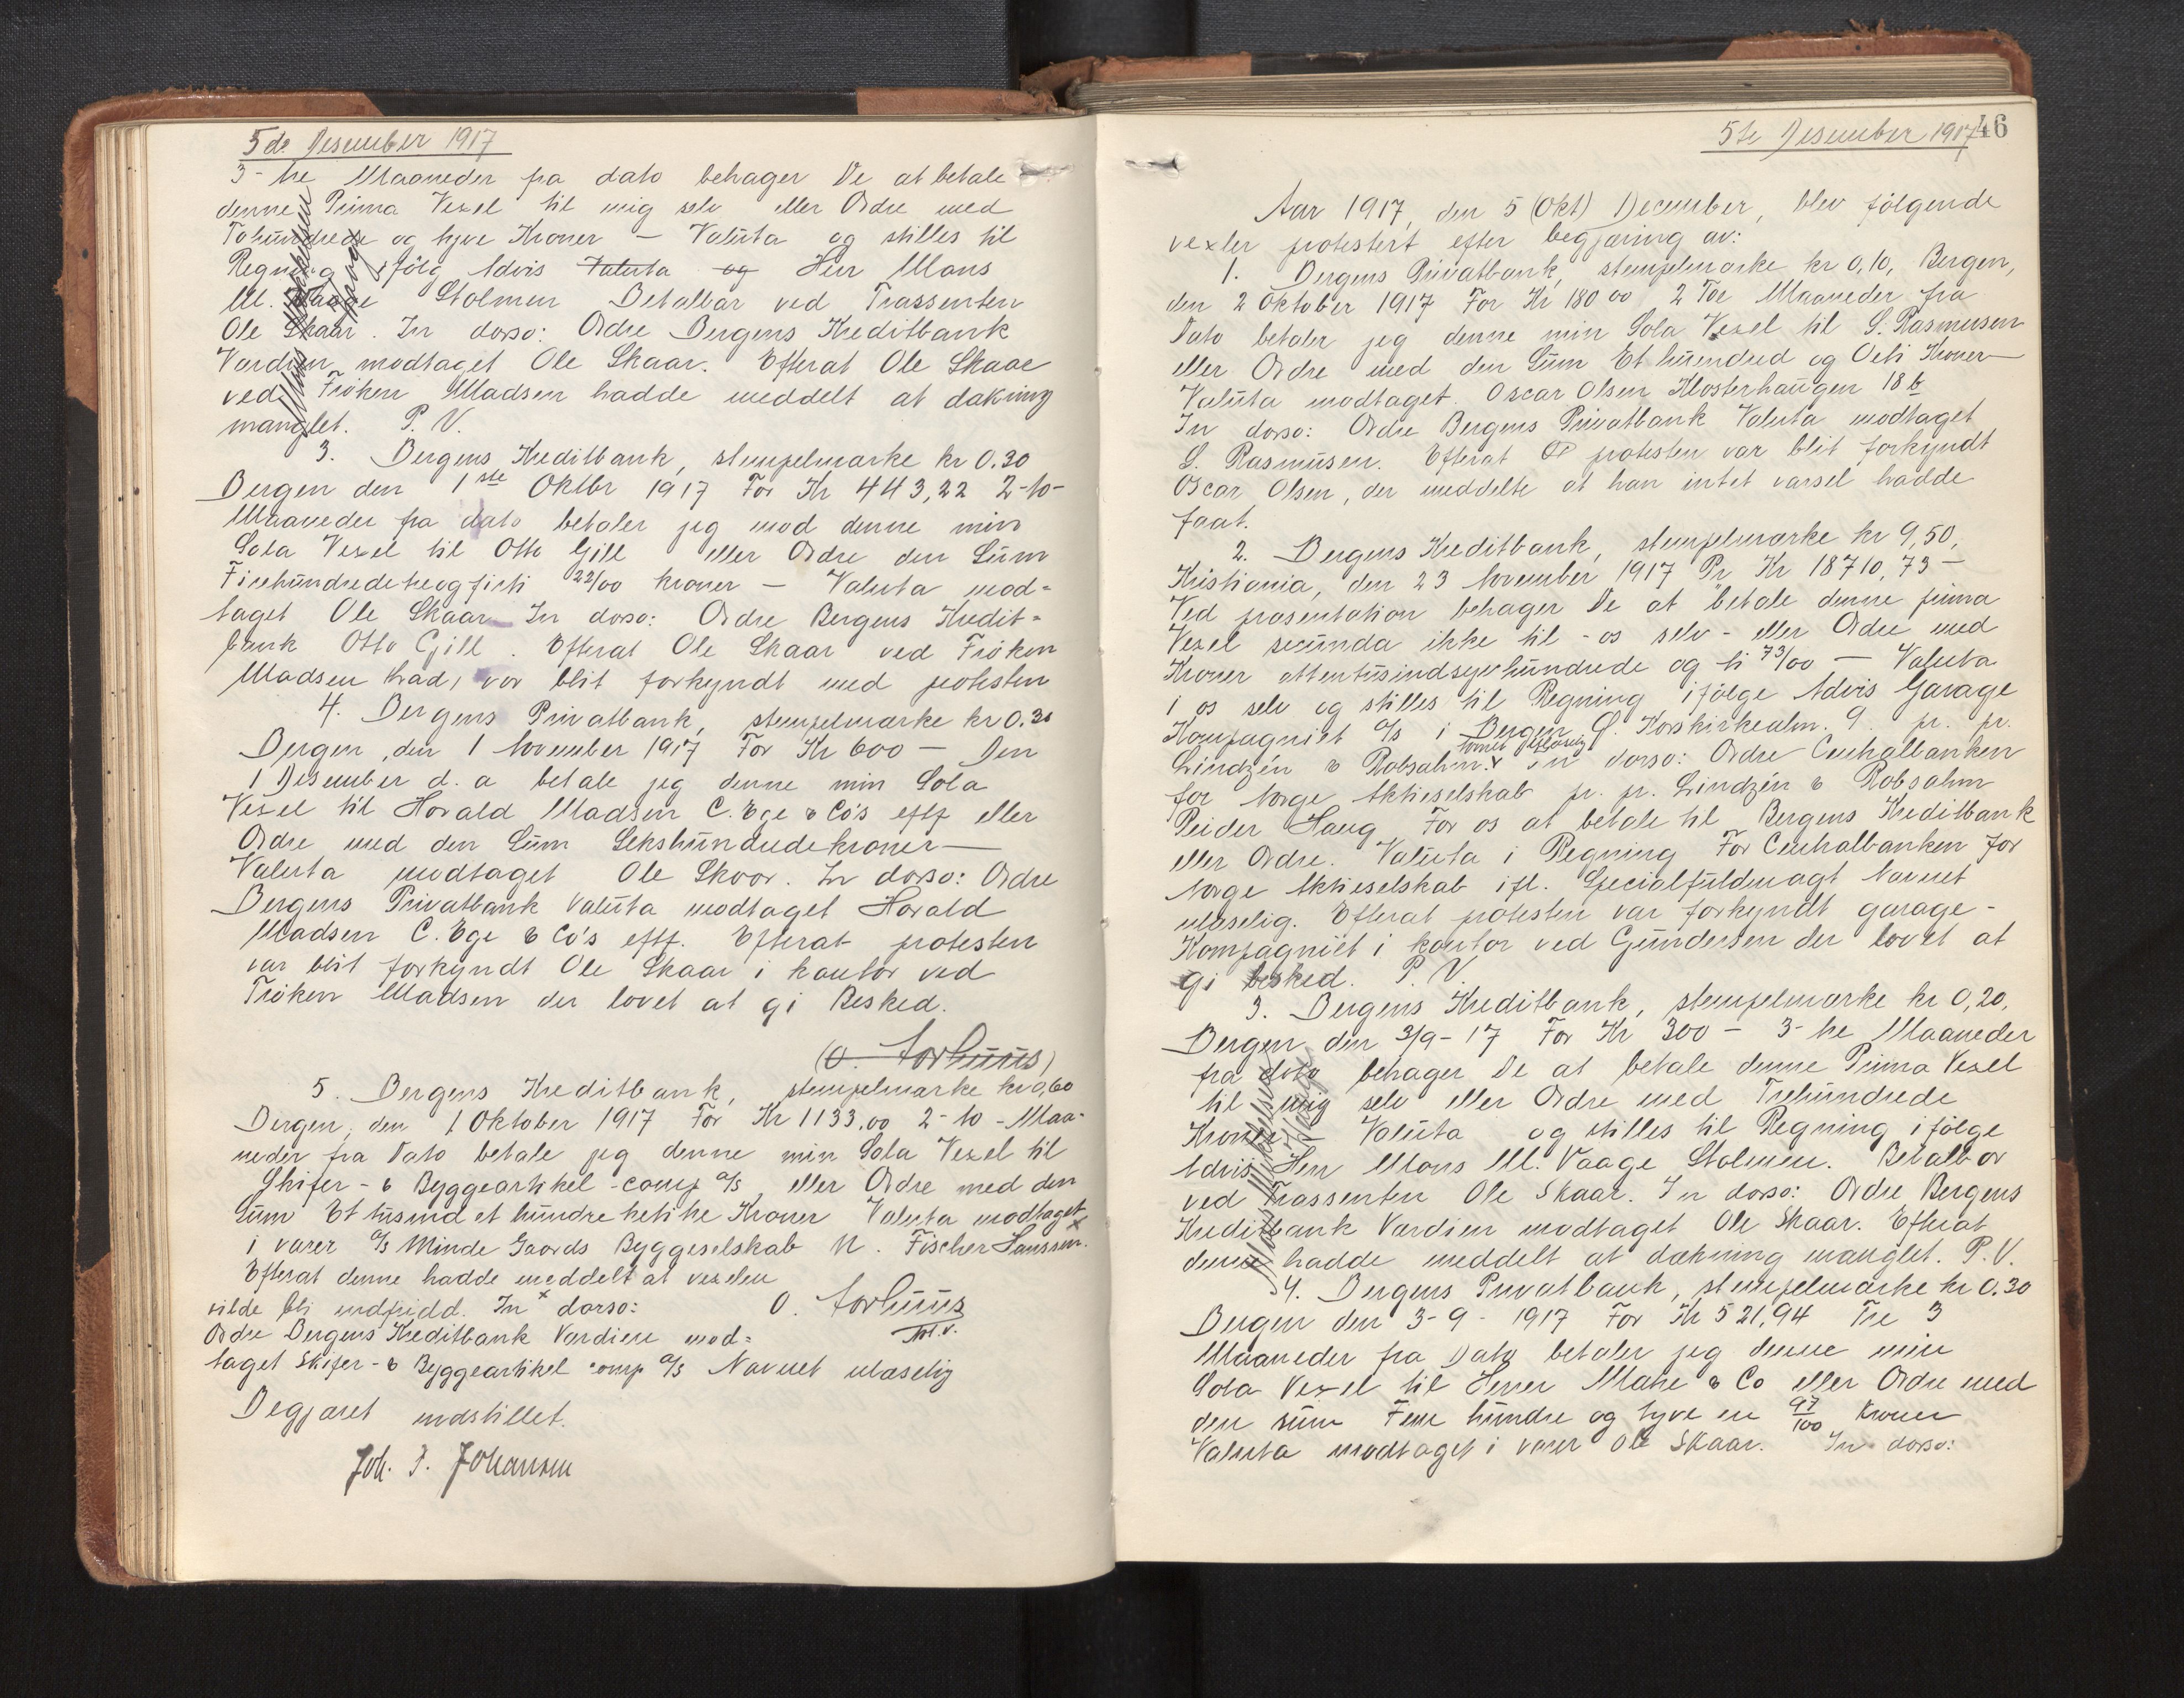 5de Desember 1917
3-tre Maaneder fra dato behager De at betale
denne Prima Vexel til mig selv eller Ordre med
Tohundrede og tyve Kroner — Valuta og stilles til
Regning ifölg Advis Valuta og Herr Mons
M. Vaage Stolmen Betalbar ved Trassenten
Ole Skaar. In dorso: Ordre Bergens Kreditbank
Værdien modtaget Ole Skaar. Efterat Ole Skaar
ved Fröken Madsen hadde meddelt at dækning
manglet. P. V.
3. Bergens Kreditbank, stempelmærke kr 0.30
Bergen den 1ste Oktbr 1917 For Kr 443,22 2-to-
Maaneder fra dato betaler jeg mod denne min
Sola Vexel til Otto Gill eller Ordre den Sum
Firehundredetreogfirti 22/00 kroner — Valuta mod-
taget Ole Skaar In dorso: Ordre Bergens Kredit-
bank Otto Gill. Efterat Ole Skaar ved Fröken
Madsen var blit forkyndt med protesten
4. Bergens Privatbank, stempelmærke kr 0.30
Bergen, den 1 November 1917 For Kr 600 — Den
1 Desember d. a betale jeg denne min Sola
Vexel til Harald Madsen C. Ege & Co's eftf eller
Ordre med den Sum Sekshundredekroner —
Valuta modtaget Ole Skaar. In dorso: Ordre
Bergens Privatbank Valuta modtaget Harald
Madsen C. Ege & Co's eftf. Efterat protesten
var blit forkyndt Ole Skaar i kontor ved
Fröken Madsen der lovet at gi Besked.
(O. Aarhuus)
5. Bergens Kreditbank, stempelmærke kr 0,60
Bergen, den 1 Oktober 1917 For Kr 1133.00 2-to-Maa-
neder fra Dato betale jeg denne min Sola Vexel til
Skifer- & Byggeartikkel-comp A/s eller Ordre med den
Sum Et tusind et hundre tretitre Kroner Valuta modtaget
i varer A/s Minde Gaards Byggeselskab N. Fischer Janssen. x
Efterat denne hadde meddelt at vexelen
vilde bli indfridd. In x dorso: O. Aarhuus
Ordre Bergens Kreditbank Værdien mod-
taget Skifer- & Byggeartikkel comp A/s Navnet ulæselig
Begjæret indstillet.
Joh. J. Johansen
5te Desember 1917 46
Aar 1917, den 5 (Okt) December, blev fölgende
vexler protestert efter begjæring av:
1. Bergens Privatbank, stempelmærke kr 0,10, Bergen,
den 2 Oktober 1917 For Kr 180 00 2 Toe Maaneder fra
Dato betaler jeg denne min Sola Vexel til S. Rasmusen
eller Ordre med den Sum Et huendred og Oeti Kroner —
Valuta modtaget. Oscar Olsen Klosterhaugen 18 b
In dorso: Ordre Bergens Privatbank Valuta modtaget
S. Rasmusen. Efterat protesten var blit forkyndt
Oscar Olsen, der meddelte at han intet varsel hadde
faat.
2. Bergens Kreditbank, stempelmærke kr 9,50,
Kristiania, den 23 November 1917 Pr Kr 18710,73 —
Ved præsentation behager De at betale denne prima
Vexel secunda ikke til - os selv - eller Ordre med
Kroner attentusindsyvhundrede og ti 73/00 — Valuta
i os selv og stilles til Regning ifölge Advis Garage
Kompagniet A/s i Bergen Ö. Korskirkealm. 9 pr. pr.
Lindzén & Robsahm. In dorso: Ordre Centralbanken
for Norge Aktieselskab pr. pr. Lindzén & Robsahm
Reider Haug For os at betale til Bergens Kreditbank
eller Ordre. Valuta i Regning For Centralbanken for
Norge Aktieselskab ifl. Specialfuldmagt Navnet
ulæselig. Efterat protesten var forkyndt garage-
Kompagniet i kontor ved Gundersen der lovet at
gi besked. P. V.
3. Bergens Kreditbank, stempelmærke kr 0,20,
Bergen den 3/9-17 For Kr 300 — 3-tre Maaneder
fra dato behager De at betale denne Prima Vexel
til mig selv eller Ordre med Trehundrede
Kroner — Valuta og stilles til Regning ifölge
Advis Herr Mons M. Vaage Stolmen. Betalbar
ved Trassenten Ole Skaar. In dorso: Ordre Bergens
Kreditbank Værdien modtaget Ole Skaar. Efterat
denne hadde meddelt at dækning manglet. P.V.
4. Bergens Privatbank, stempelmærke kr 0.30
Bergen den 3-9-1917 For Kr 521,94 Tre 3
Maaneder fra Dato betaler jeg denne min
Sola Vexel til Herrer Mahe & Co eller Ordre med
den sum Fem hundre og tyve en 97/100 Kroner
Valuta modtaget i varer Ole Skaar. In dorso: